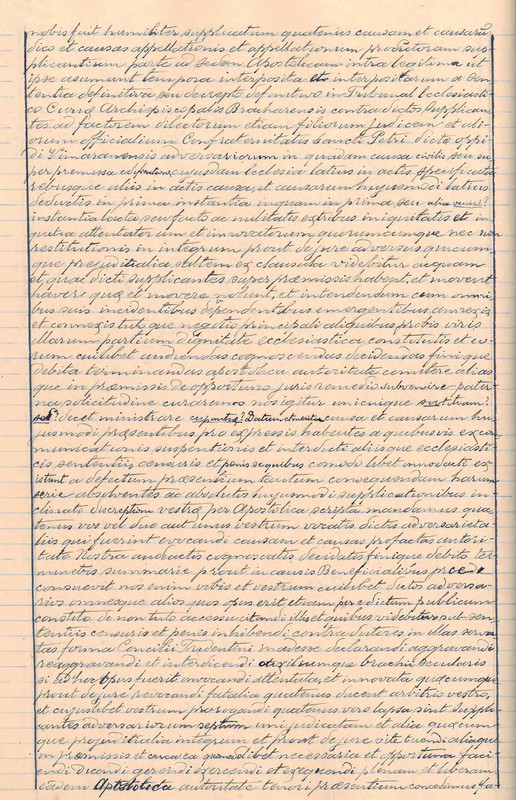 nobis fuit humiliter supplicatum quatenus causam et causarū
dico et causas appellationis et appellationum prodictoram sup-
plicantium parte ad sedem Apostolicam intra legitima ut
ipse asumunt tempora interposita et interpositarum a Sen
tentia definitiva seu decreto definitivo in Tribunal Ecclesiasti-
co Curiæ Archipiscopalis Bracharensis contra dictos supplican
tes ad factorem dilectorum etiam filiorum Judicem et ali-
orum officialium Confraternitatis Sancti Petri dicto oppi
di Vimaranensis adversariorum in quadam causa civilis seu su
per premissa cujusdam Ecclesia latius in actis specificata
rebusque aliis in detis causa, et causarum hujusmodi latius
deductis in prima instantia inquam in prima seu alia
instantia lacta seu facto ac nulitates ex tribus iniquitatis et in
quatra attentatorum et innovatorum quorumcunque nec non
restitutionis in integrum prout de jure adversus quæcum
que prejuditialia, saltem ex clausula videbitur acquam
et, quæ dicti supplicantes super præmissis habent, et movent
havere quæ et movere potunt, et intendendum cum omni
bus suis incidentibus dependentibus emergentibus annexis
et connexis totuque negotis principali aliquibus probis viris
illarum partium dignitate ecclesiastica constitutis et eo-
rum cuilibet audiendas cognoscendas decidendas finique
debita terminandas apostolica autoritate comitere alias
que in præmissis de opportuno juris remedio subvenire pater
na solicitudine curaremos nos igitur unicuique
decet ministrare causa et causarum hu
jusmodi præsentibus pro expressis habentes a quibusvis exco-
municationis suspentionis et interdicti aliisque ecclesiasti-
cis sententiis censuris et penis sequibus comodo libet innodate ex
istunt a defectum præsentium tantum consequendam harum
serie absolventes ac absolutis hujusmodi supplicationibus in-
clinati discreptioni vestræ per Apostolica scripta mandamus qua
tenus vos vel duo aut unus vestrum vocatis dictis adversarieta
liis qui fuerint evocandi causam et causas prefactas autori-
tate Nostra audiactis cognoscatis, decidatis finique debito ter
minetis, summarie prout in causis Beneficialibus procede
consuevit nos enim vobis et vestrum cuilibet, dictos adversa-
rios omnesque alios quos opus erit etiam per edictum publicum
constito de non tuto accessu citandi illis et quibus videbitur sub sen-
tentiis censuris et penis inhibendi contradictores in illas serva
tas forma Concilii Tridentini incidesse declarandi aggravandi
reaggravandi et interdicendi auxiliumque brachii secularis
si ad hoc opus fuerit invocandi attentata, et innovata quæcumque
prout de jure revocandi fatalia quatenus ducent arbitrio vestro,
et cujuslibet vestrum prorogandi quatenus vero lapsa sint suppli-
cantes adversariorum septum uni judicatam et alia quæcum-
que prejuditialia integrum et prout de jure vite tuendi aliaque
in præmissis et circa ea quomodolibet necessaria et opportuna faci
endi dicendi gerendi exercendi et exequendi plenam et liberam
eadem Apostolica autoritate tenori præsentium concedimus fa-